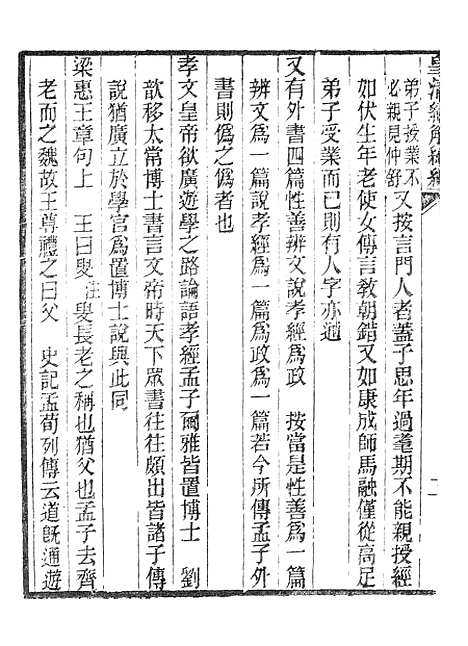 皇清經解續編
弟子授業不
必親見仲舒
又按言門人者蓋子思年過耄期不能親授經
如伏生年老使女傳言教朝錯又如康成師馬融僅從高足
弟子受業而已則有人字亦通
又有外書四篇性善辨文說孝經爲政　按當是性善爲一篇
辨文爲一篇說孝經爲一篇爲政爲一篇若今所傳孟子外
書則僞之僞者也
孝文皇帝欲廣遊學之路論語孝經孟子爾雅皆置博士　劉
歆移太常博士書言文帝時天下眾書往往頗出皆諸子傳
說猶廣立於學官爲置博士說與此同
梁惠王章句上　王曰叟注叟長老之稱也猶父也孟子去齊
老而之魏故王尊禮之曰父　史記孟荀列傳云道既通遊